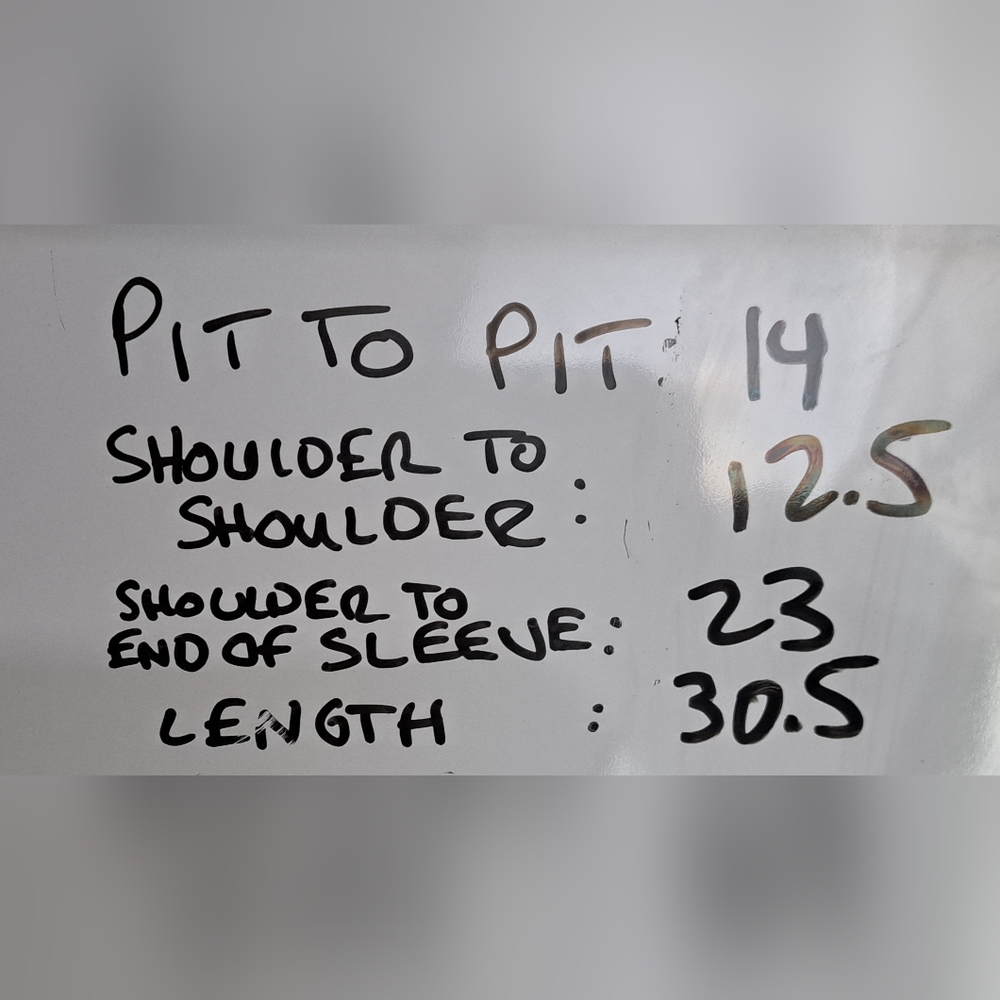 PIT TO PIT: 14
SHOULDER TO
SHOULDER : 12.5
SHOULDER TO
END OF SLEEVE: 23
LENGTH : 30.5